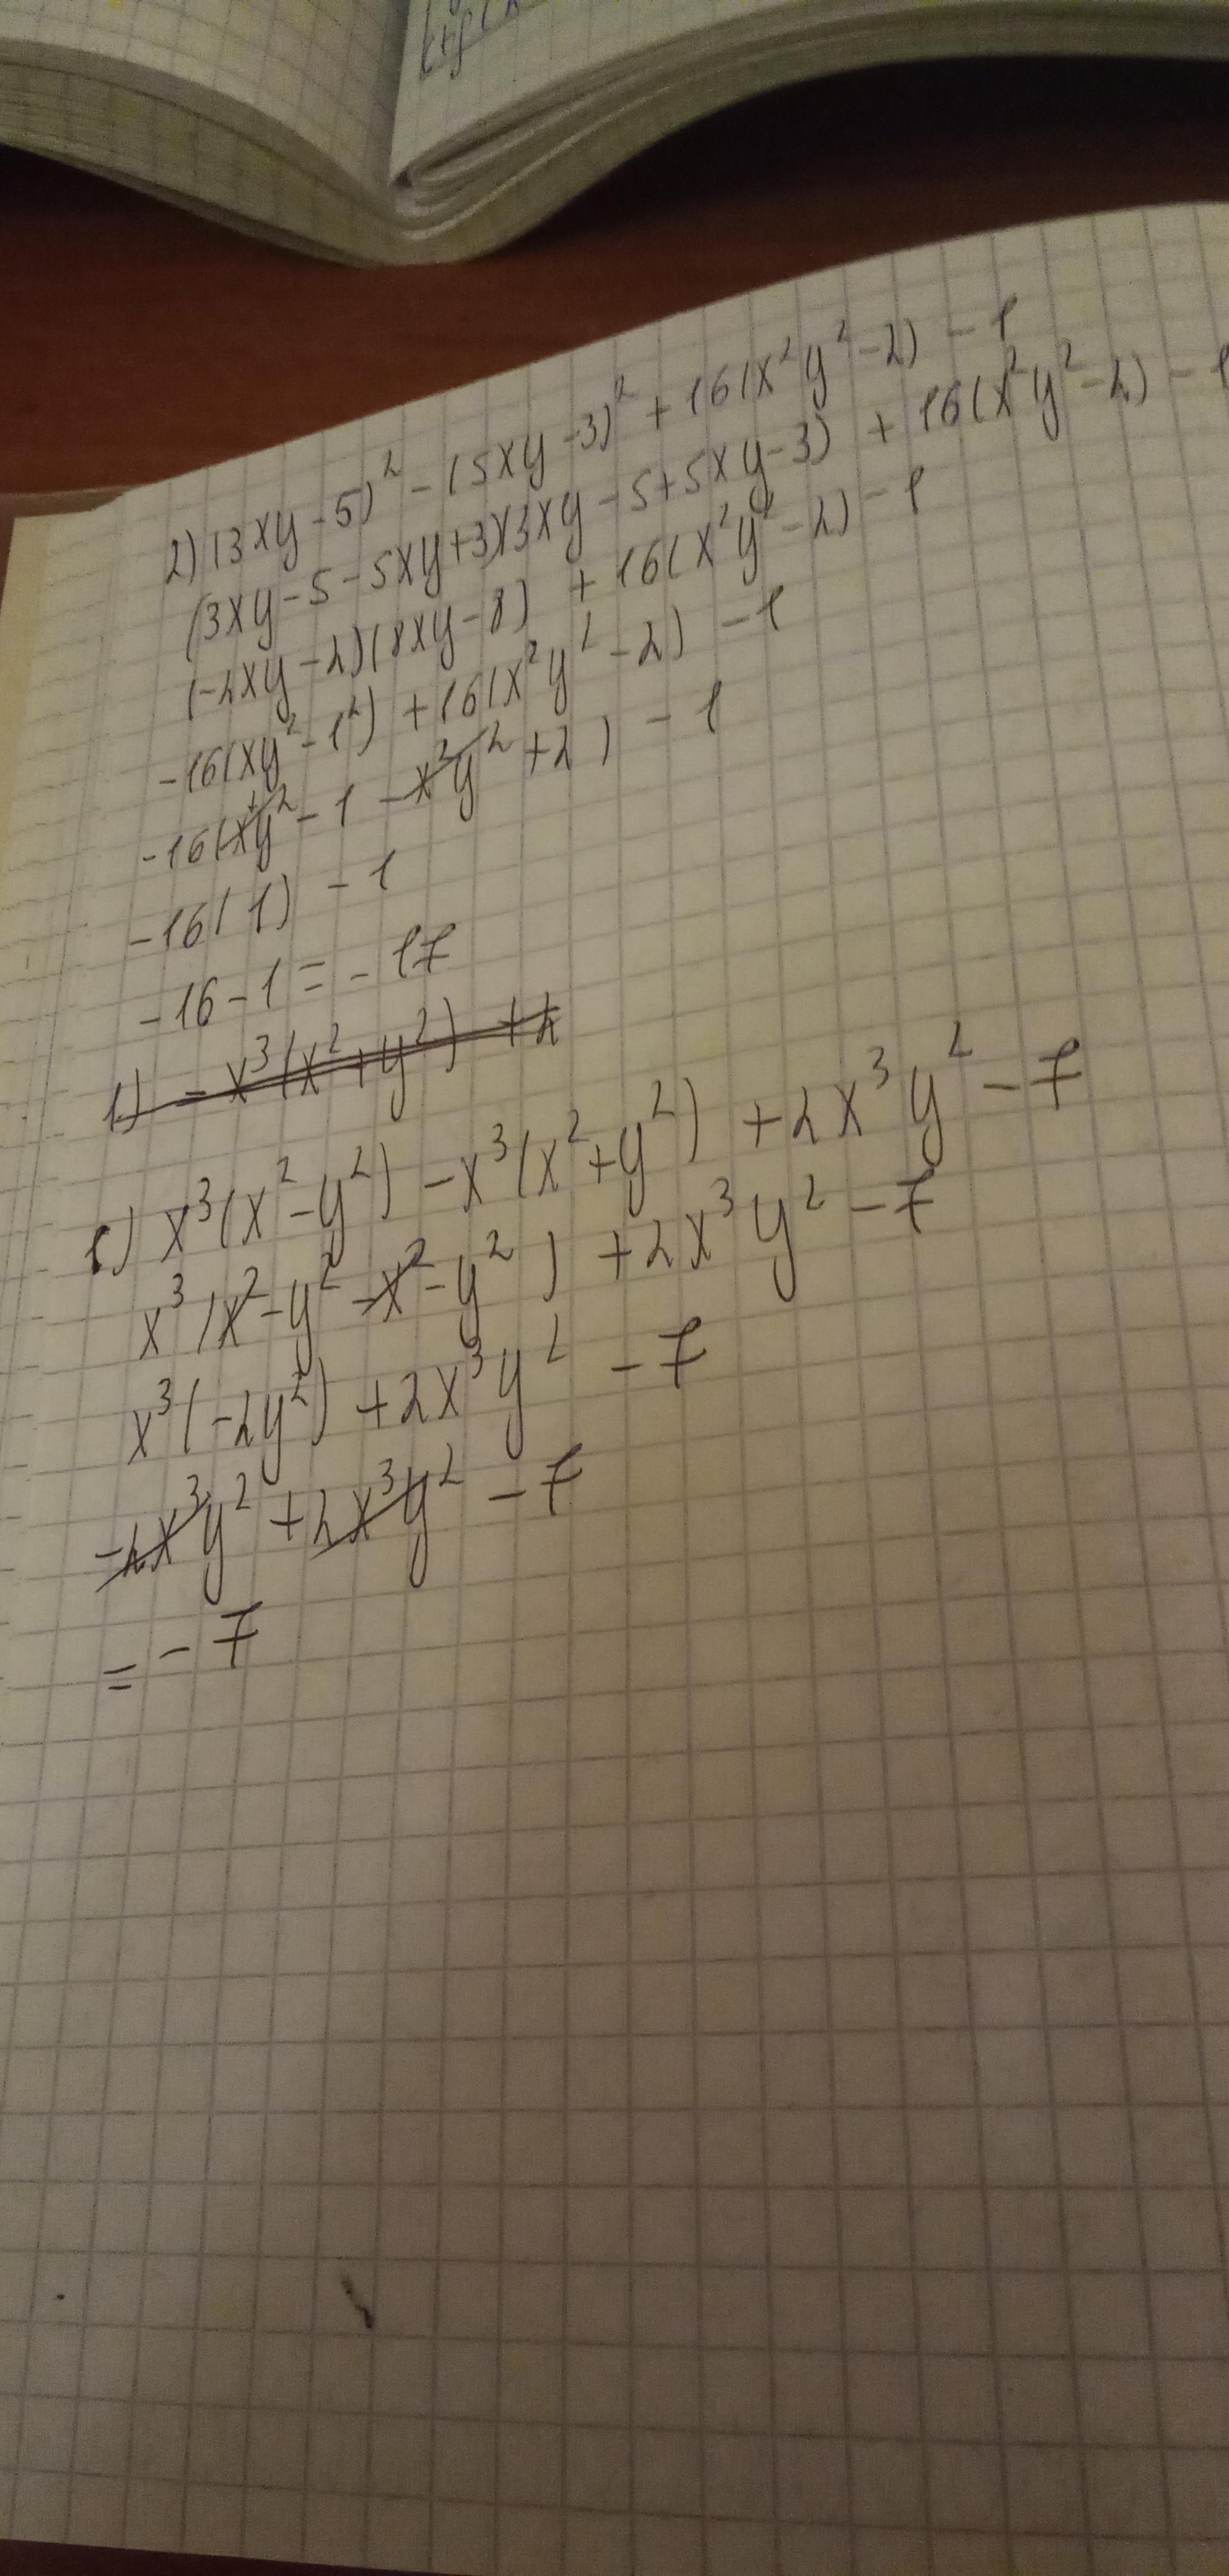 2) (3xy - 5)² - (5xy - 3)² + 16(x²y² - 2) - 1
(3xy - 5 - 5xy + 3)(3xy - 5 + 5xy - 3) + 16(x²y² - 2) - 1
(-2xy - 2)(8xy - 8) + 16(x²y² - 2) - 1
-16(xy² - 1²) + 16(x²y² - 2) - 1
-16(x²y² - 1 - x²y² + 2) - 1
-16(1) - 1
-16 - 1 = -17
1) - x³(x² + y²) + 2
1) x³(x² - y²) - x³(x² + y²) + 2x³y² - 7
x³(x² - y² - x² - y²) + 2x³y² - 7
x³(-2y²) + 2x³y² - 7
-2x³y² + 2x³y² - 7
= -7